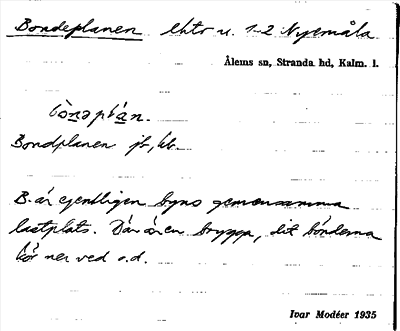 Bondeplanen lhtr u. 1-2 Nyemåla
Ålems sn, Stranda hd, Kalm. l.
Bondplanen jb, kb.
B. är egentligen byns gemensamma
lastplats. Där är en brygga, dit bönderna
kör ner ved o.d.
Ivar Modéer 1935